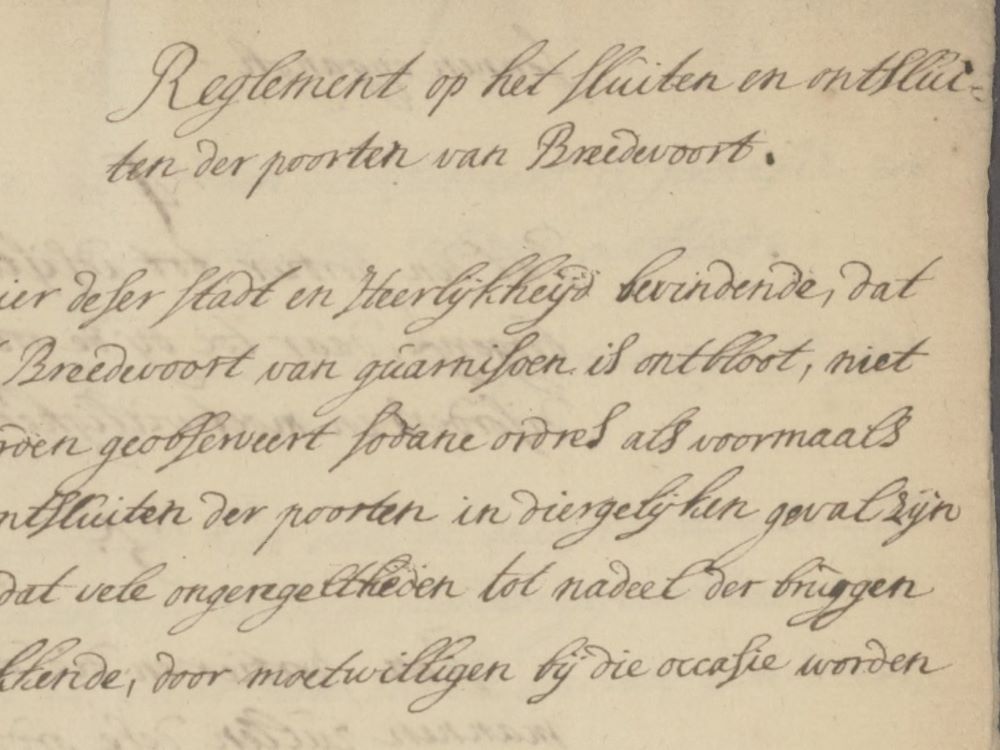 Reglement op het sluiten en ontslui-
ten der poorten van Breedevoort.
deser stadt en Heerlijkheijd bevindende, dat
Breedevoort van guarnisoen is ontbloot, niet
geobserveert sodane ordres als voormaals
ntsluiten der poorten in diergelijken geval zijn
dat vele ongeregeltheden tot nadeel der bruggen
kkende, door moetwilligen bij die occasie worden